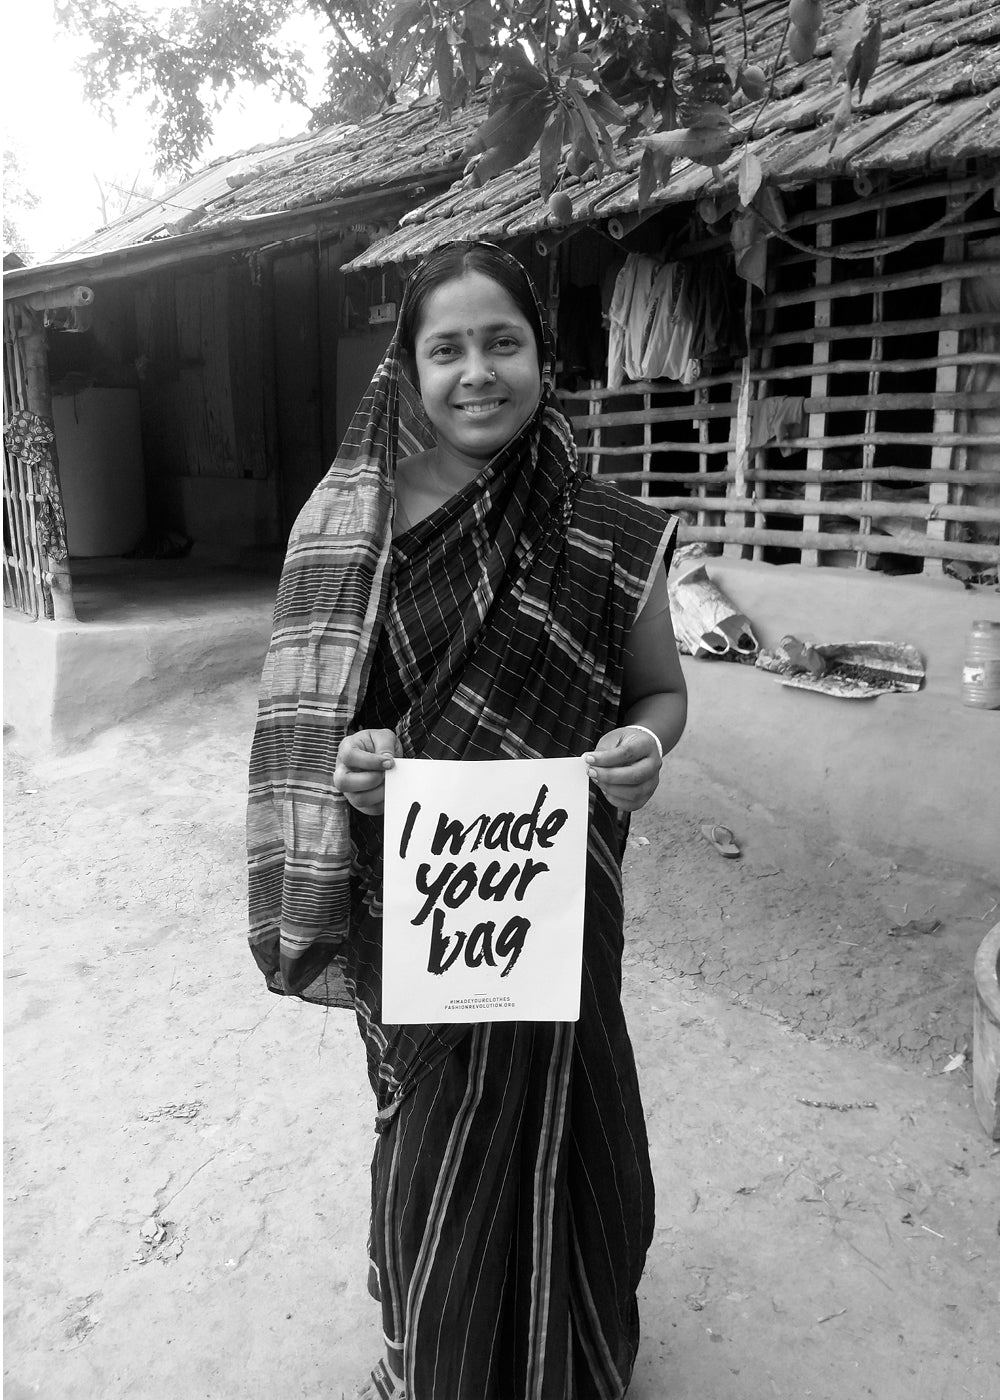 I made
your
bag
#IMADEYOURCLOTHES
FASHIONREVOLUTION.ORG